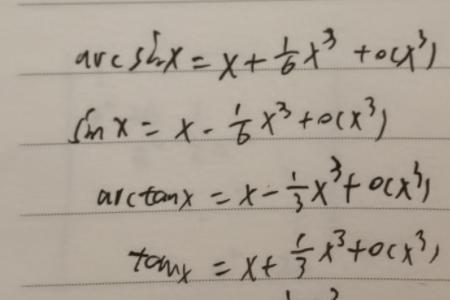 arcsinx = x + 1/6 x³ + o(x³)
sin x = x - 1/6 x³ + o(x³)
arctanx = x - 1/3 x³ + o(x³)
tanx = x + 1/3 x³ + o(x³)